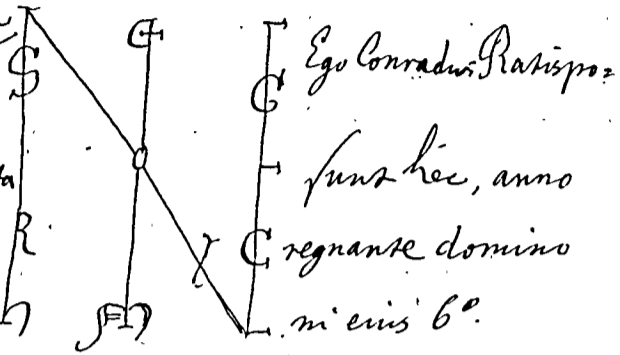 Ego Conradus Ratispo=
sunt hec, anno
regnante domino
ni eius 6º.